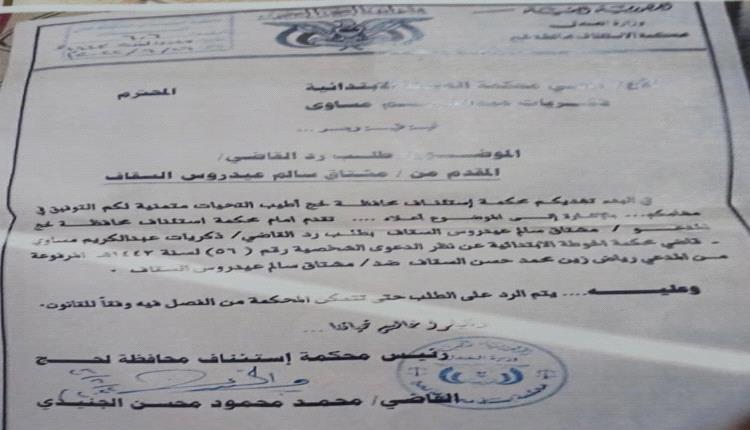 وزارة العدل
محكمة الاستئناف محافظة لحج
٦٠٦
الأخ/ قاضي محكمة الابتدائية المحترم
ذكريات مساوى
الموضوع/ طلب رد القاضي/
المقدم من / مشتاق سالم عيدروس السقاف
في البدء تهديكم محكمة إستئناف محافظة لحج أطيب التحيات متمنية لكم التوفيق في
مهامكم... بالإشارة إلى الموضوع أعلاه .... تقدم امام محكمة استئناف محافظة لحج
المدعو / مشتاق سالم عيدروس السقاف بطلب رد القاضي/ ذكريات عبدالكريم مساوى
- قاضي محكمة الحوطة الابتدائية عن نظر الدعوى الشخصية رقم (٥٦) لسنة ١٤٤٣هـ المرفوعة
من المدعي رياض زين محمد حسن السقاف ضد/ مشتاق سالم عيدروس السقاف .
وعليـــه.... يتم الرد على الطلب حتى تتمكن المحكمة من الفصل فيه وفقاً للقانون.
رئيس محكمة إستئناف محافظة لحج
القاضي/ محمد محمود محسن الجنيدي